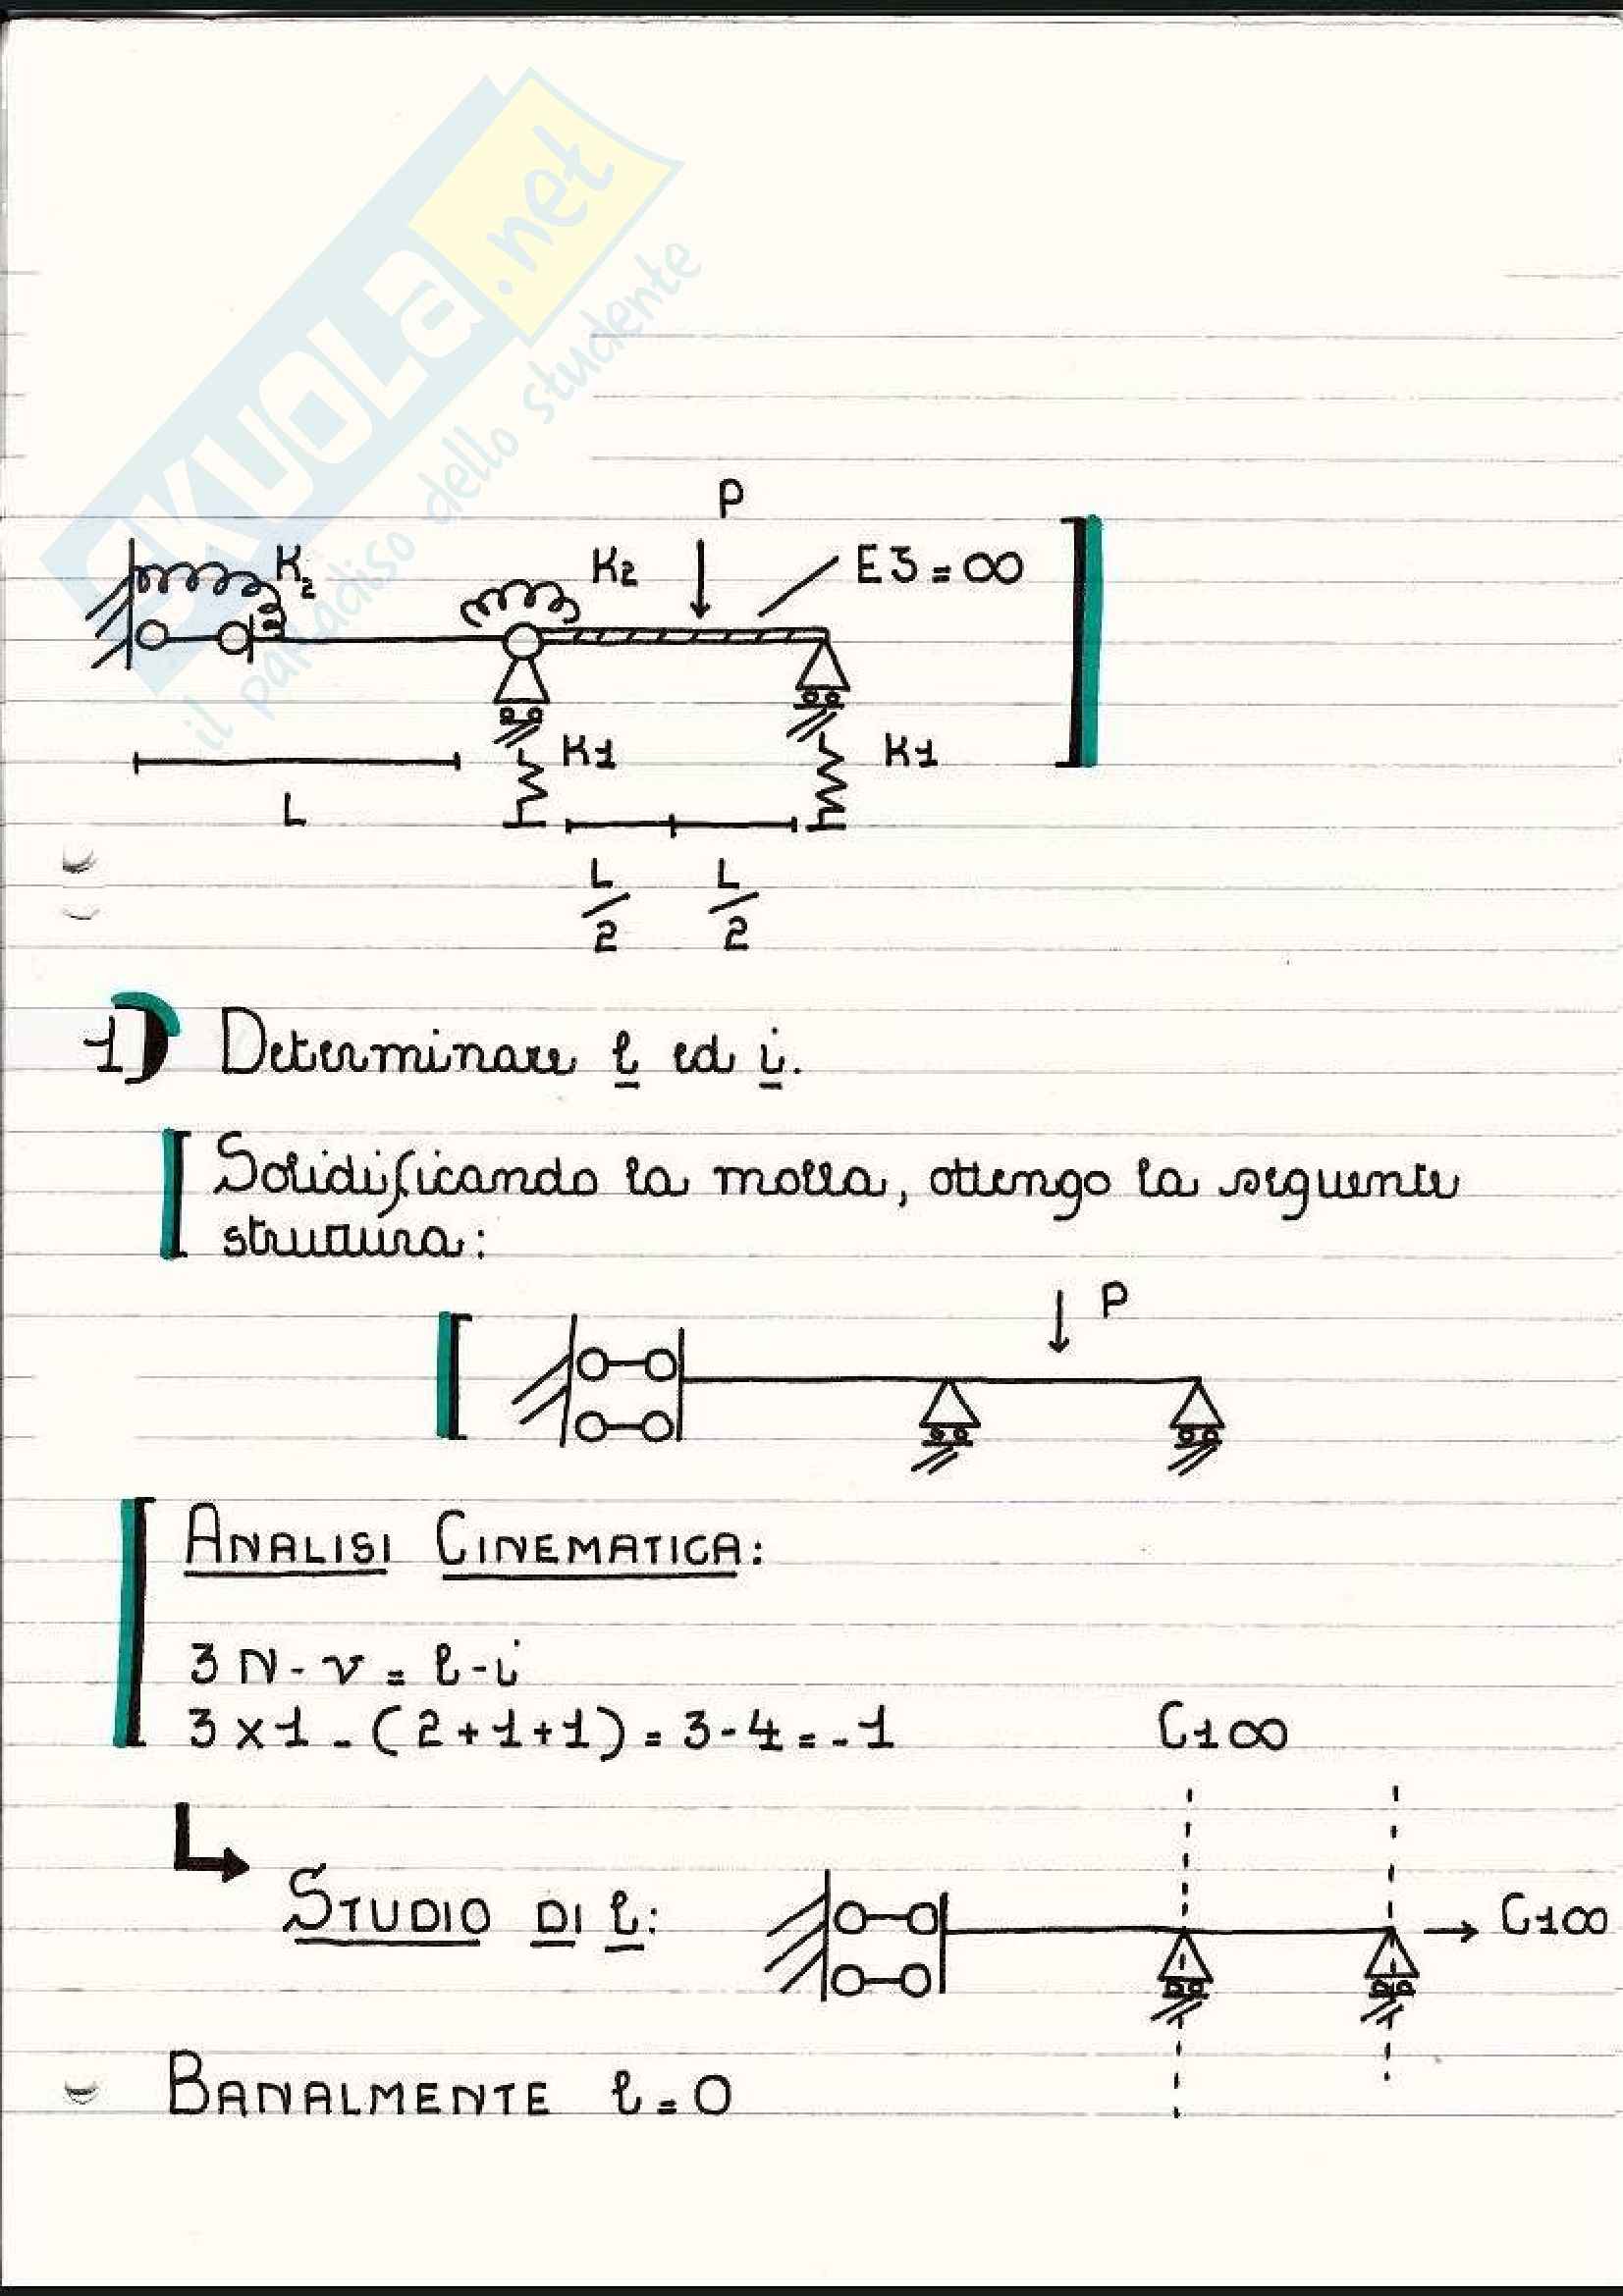 SKUOLA.net
il paradiso dello studente
P
K2
K2
EJ = ∞
K1
K1
L
L/2
L/2
1) Determinare l ed i.
Solidificando la molla, ottengo la seguente
struttura:
P
ANALISI CINEMATICA:
3N - v = l - i
3 x 1 - (2 + 1 + 1) = 3 - 4 = - 1
C1∞
STUDIO DI l:
C1∞
BANALMENTE l = 0